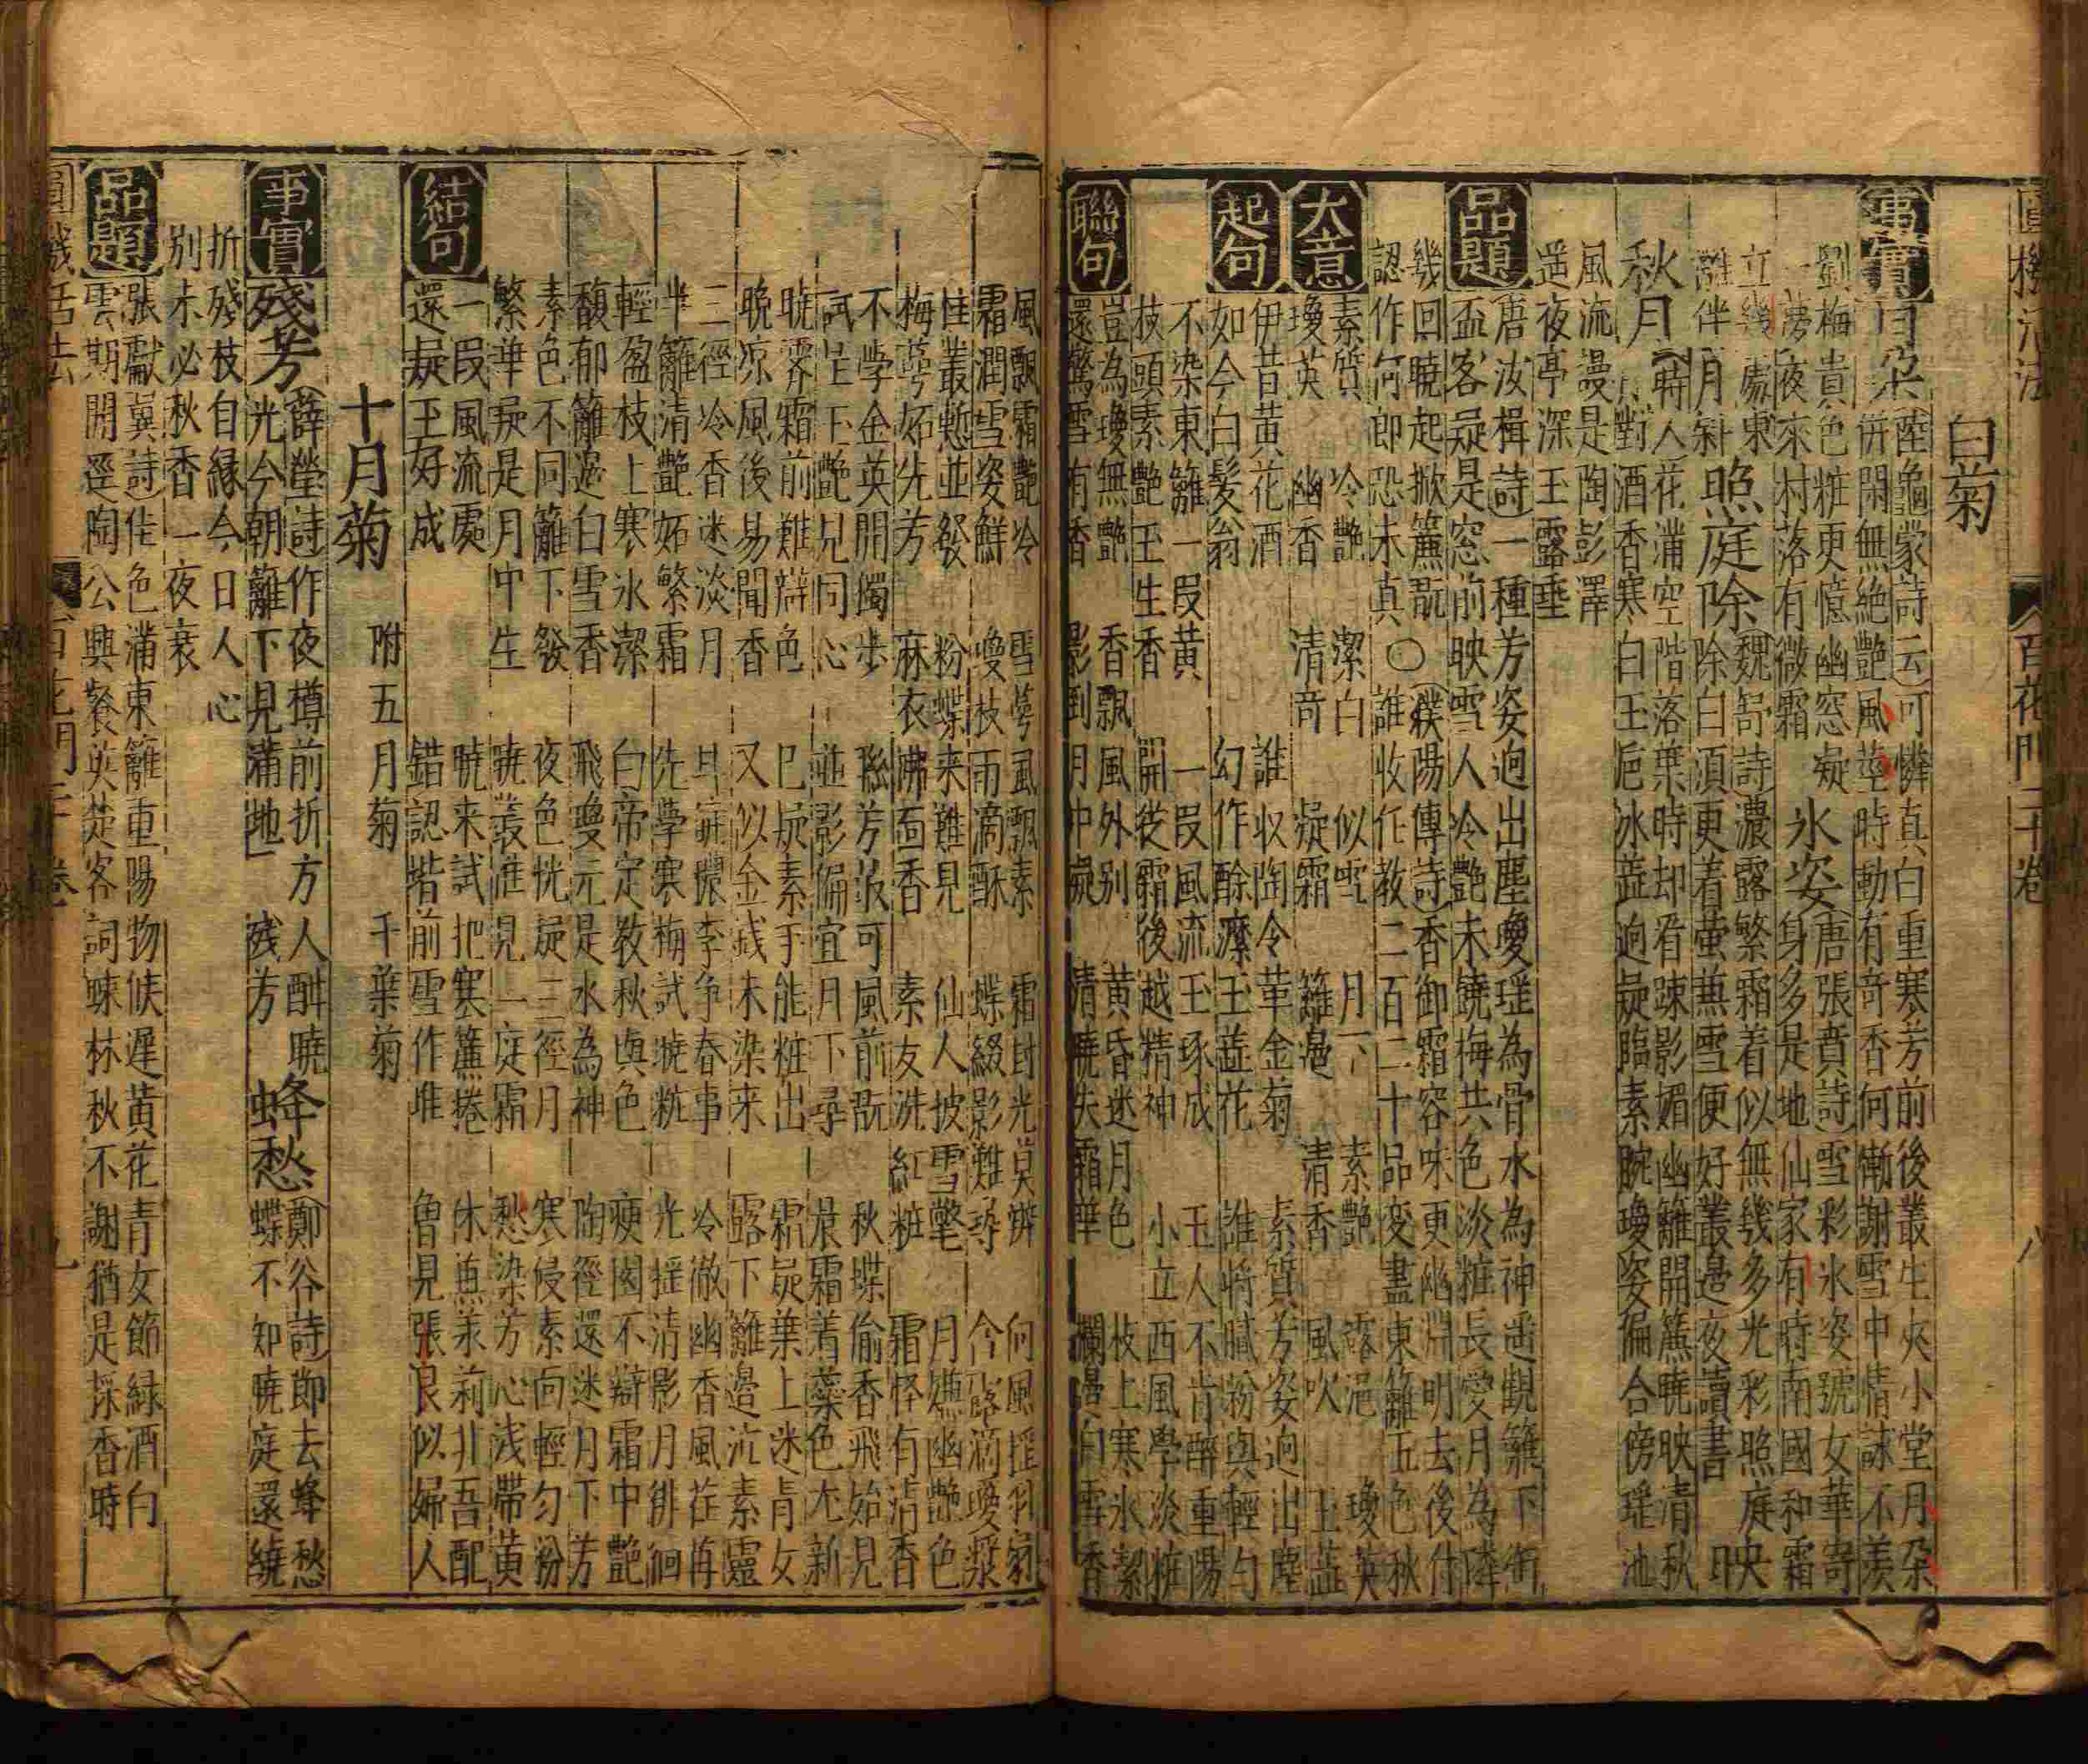 圓機活法 百花門二十卷 八
白菊
事實 月朶 陸龜蒙詩云可憐真白重寒芳前後叢生夾小堂月朶
併閑無絶艷風莖時動有奇香何慚謝雪中情詠不羨
劉梅貴色粧更憶幽窓凝 冰姿 唐張賁詩雪彩氷姿號女華寄
一夢夜來村落有微霜 身多是地仙家有時南國和霜
立幾處東 照庭除 詩濃露繁霜着似無幾多光彩照庭央
籬伴月斜 除白湏更着螢無雪便好叢邊夜讀書
秋月 時人花滿空階落葉時却看踈影媚幽籬開簾曉映清秋
月對酒香寒白玉巵氷蘂逈凝臨素腕瓊姿偏合傍瑶池
風流漫是陶彭澤
遥夜亭深玉露垂
品題 唐汝楫詩一種芳姿逈出塵瓊瑶為骨水為神遥觀籬下銜
盃客疑是窓前映雪人冷艷未饒梅共色淡粧長愛月為隣
幾回曉起掀簾翫○濮陽傳詩香御霜容味更幽淵明去後付
認作何郎恐未真 誰收任教二百二十品变盡東籬五色秋
大意 素質 冷艷 潔白 似雪 月下 素艷 露浥 瓊英
瓊英 幽香 清奇 凝霜 籬邉 清香 風吹 玉蘂
起句 伊昔黄花酒 誰収陶令華金菊 素質芳姿逈出塵
如今白髮翁 幻作酴醾玉蘂花 誰將膩粉與輕勻
不染東籬一叚黄 一叚風流玉琢成 玉人不肯醉重陽
枝頭素艷玉生香 開從霜後越精神 小立西風學淡粧
聯句 豈為瓊無艷 香飄風外别 黄昏迷月色 枝上寒氷潔
還驚雪有香 影到月中凝 清曉失霜華 欄邉白雪香
風飄霜艷冷 雪萼風飄素 霜封光莫辨 何風摧羽
霜潤雪姿鮮 瓊枝雨滴酥 蝶綴影難尋 今露滴瓊漿
佳叢慙並發 粉蝶来難見 仙人披雪氅 月嬌幽艷色
梅萼妬先芳 麻衣拂面香 素友洗紅粧 霜怪有清香
不學金英開獨步 聯芳最可風前翫 秋蝶偷香飛始見
試玉艷見同心 並影偏宜月下尋 晨霜着蘂色尤新
曉霽霜前難辯色 已疑素手能粧出 霜凝葉上迷青女
晚凉風後易聞香 又似金錢未染来 露下籬邉沆素靈
三徑冷香迷淡月 李爭春事 冷徹幽香風荏苒
半籬清艷妬繁霜 先學寒梅試曉粧 光摇清影月徘徊
輕盈枝上寒氷潔 白帝定教秋與色 痩園不辯霜中艷
馥郁籬邉白雪香 飛瓊元是水為神 陶徑還迷月下芳
素色不同籬下發 夜色恍疑三徑月 寒侵素向輕勻粉
繁華疑是月中生 曉叢惟見一庭霜 愁染芳心浅帶黄
結句 一叚風流處 曉来試把寒簾捲 休無茉莉非吾配
還疑玉好成 錯認堦前雪作堆 曾見張良似婦人
十月菊 附五月菊 千葉菊
事實 殘芳 薛瑩詩作夜樽前折方人酣曉 蜂愁 鄭谷詩節去蜂愁
光今朝籬下見滿地殘芳 蝶不知曉庭還繞
折殘枝自緣今日人心
别未必秋香一夜衰
品題 張獻冀詩佳色滿東籬重陽物候遲黄花青女節緑酒白
雲期開逕陶公興餐英楚客詞蛺林秋不謝猶是採香時
圓機活法 百花門二十卷 九